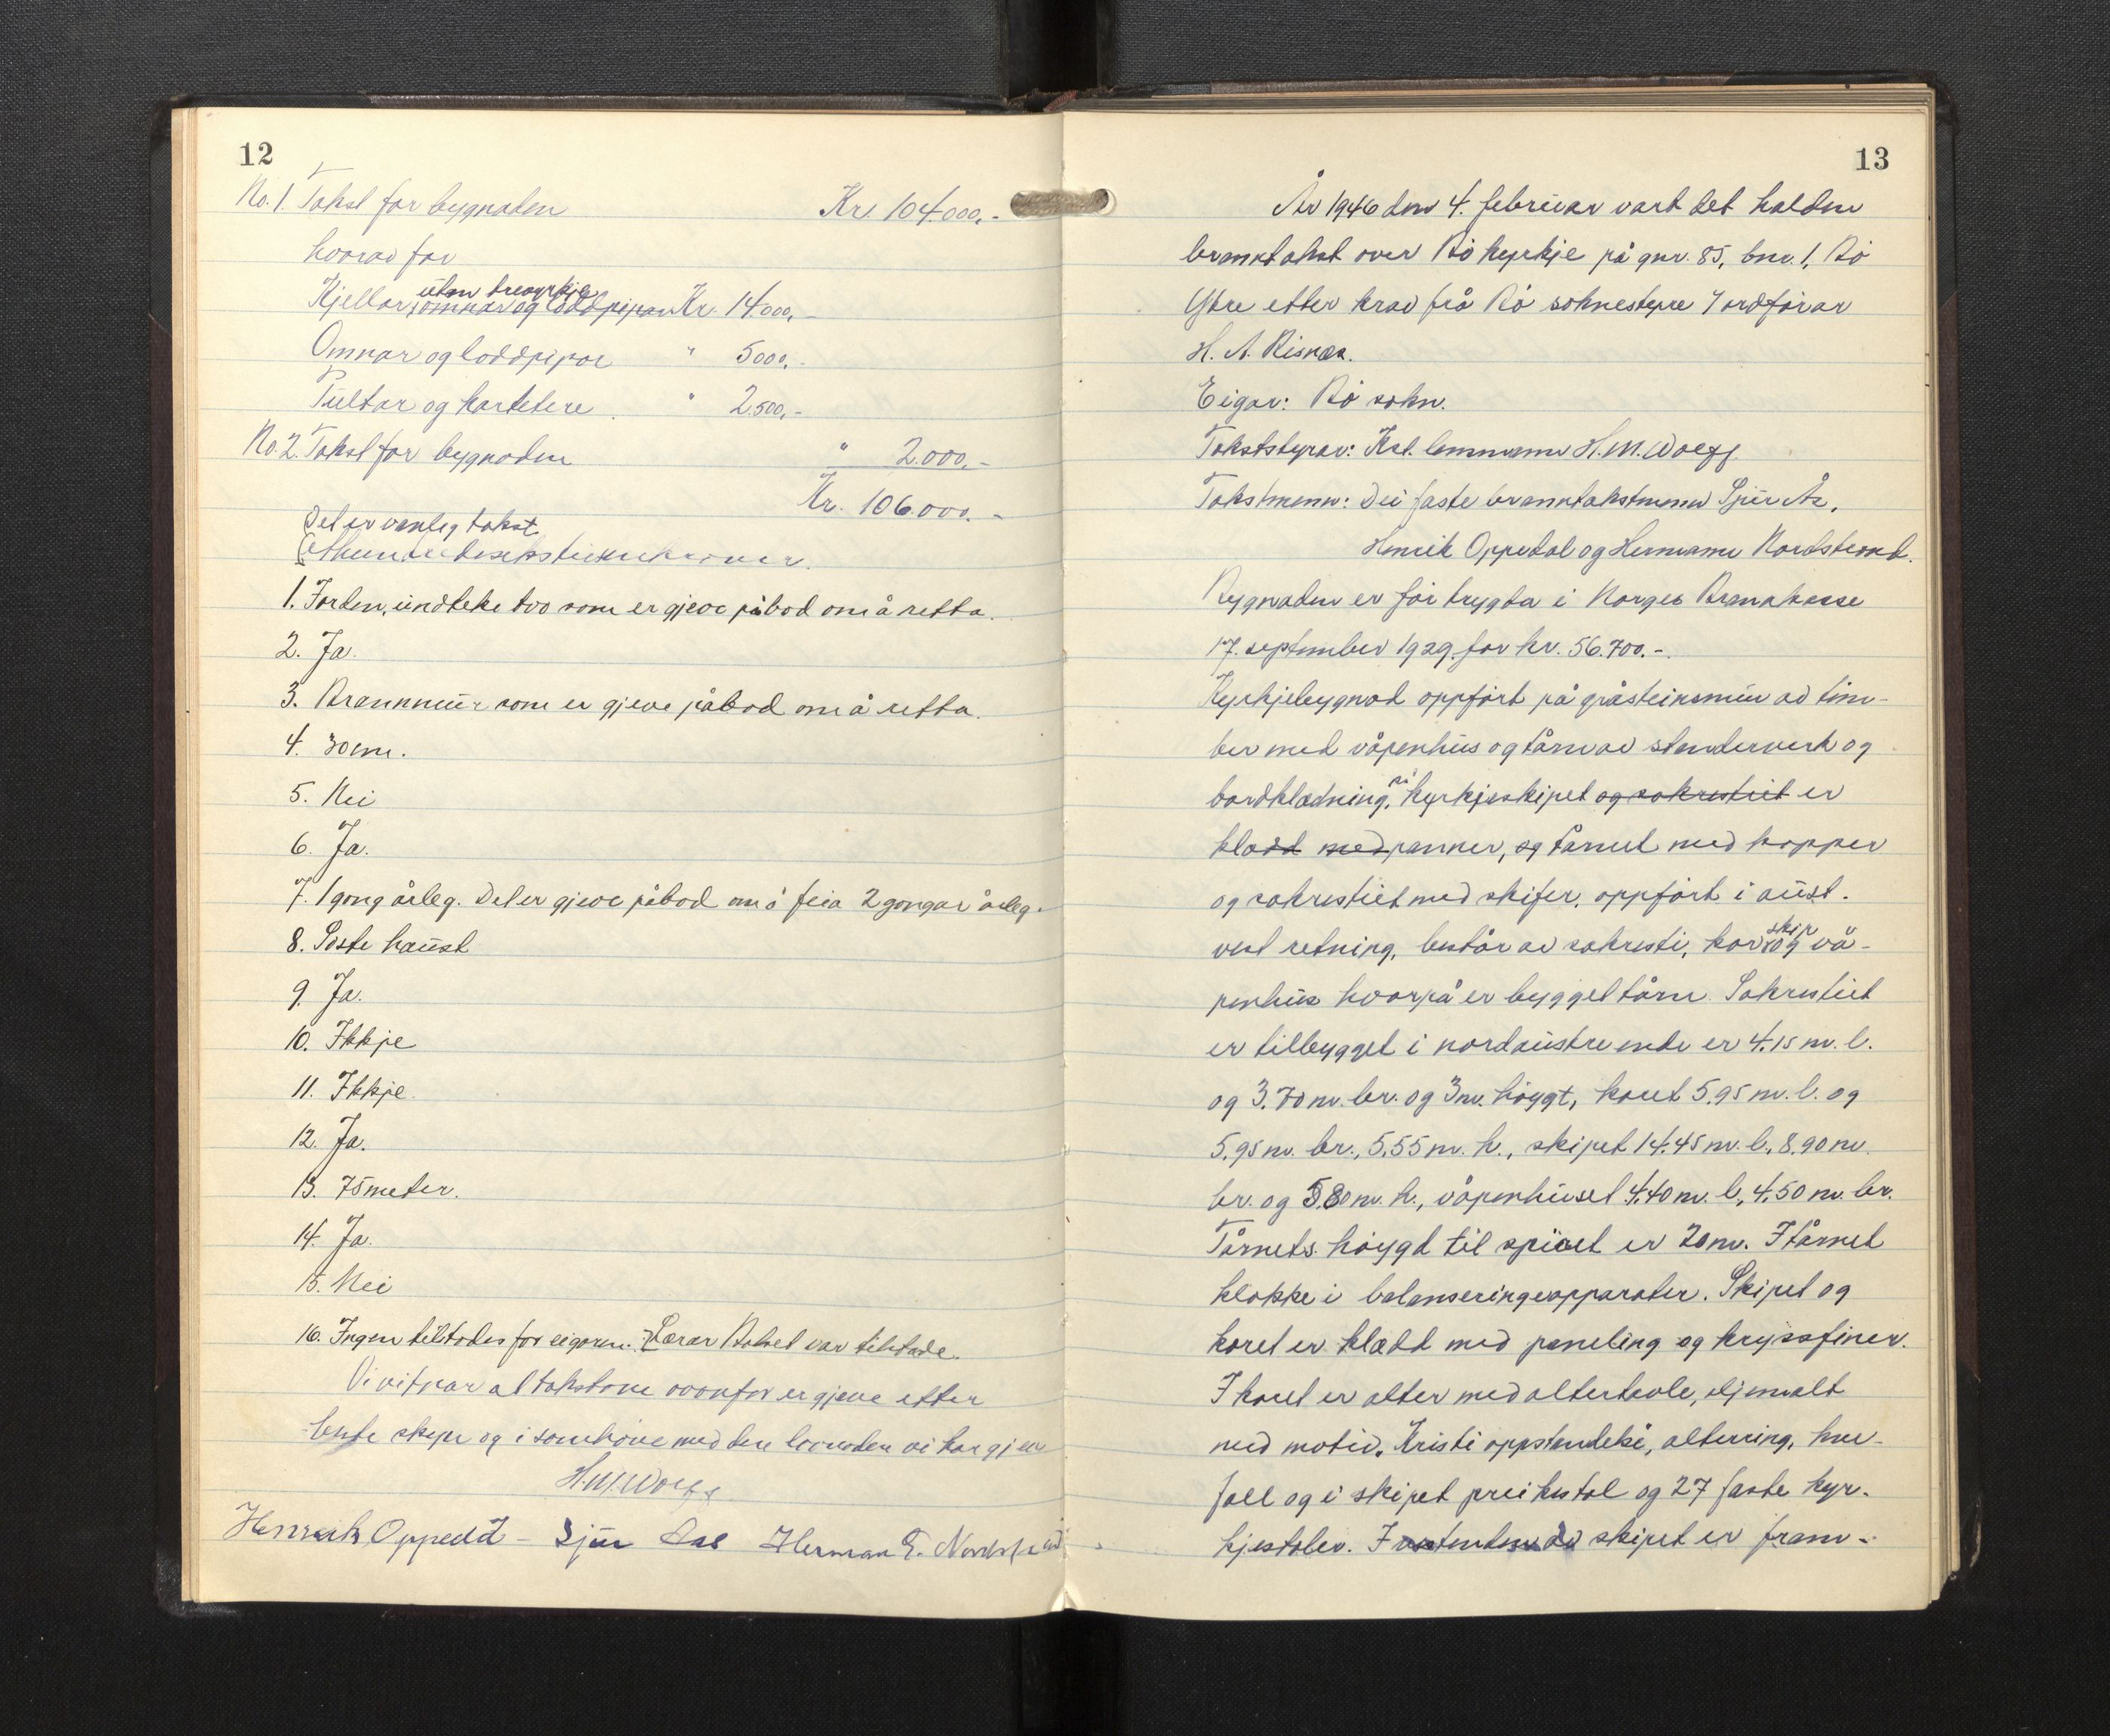 12
No. 1. Takst for bygnaden Kr. 104.000,-
hvorav for
utan treverkje
Kjellar, omnar og loddpipar Kr. 14.000,-
Omnar og loddpipor " 5000,-
Pultar og kartetere " 2.500,-
No. 2. Takst for bygnaden " 2.000,-
Kr. 106.000,-
Det er vanleg takst
1. Jorden, undteke tvo som er gjeve påbod om å retta.
2. Ja.
3. Brannmur som er gjeve påbod om å retta.
4. 30 cm.
5. Nei
6. Ja.
7. 1 gong årleg. Det er gjeve påbod om å feia 2 gongar årleg.
8. Siste haust
9. Ja.
10. Ikkje
11. Ikkje
12. Ja.
13. 75 meter.
14. Ja.
15. Nei
16. Ingen tilstades for eigaren. Lærar var tilstade.
Vi vitnar at takstane ovanfor er gjeve etter
beste skyn og i samhøve med den lovnaden vi har gjeve
H.M. Wolff
Henrik Oppedal - Sjur Aas Herman E. Nordstrand
13
År 1946 den 4. februar vart det halden
branntakst over Bø kyrkje på gnr. 85, bnr. 1, Bø
Ytre etter krav frå Bø soknestyre v/ ordførar
H. A. Risnes.
Eigar: Bø sokn.
Takststyrar: Kst. lensmann H. M. Wolff
Takstmenn: Dei faste branntakstmenn Sjur Ås,
Henrik Oppedal og Hermann Nordstrand.
Bygnaden er før trygda i Norges Brannkasse
17. september 1929 for kr. 56.700.-
Kyrkjebygnad oppført på gråsteinsmur av tim-
ber med våpenhus og tårn av stenderverk og
bordkledning, på kyrkjeskipet og sakrestiet er
kledd med panner, og tårnet med kopper
og sakrestiet med skifer, oppført i aust-
vest retning, består av sakresti, kor skip og vå-
penhus hvorpå er bygget tårn. Sakrestiet
er tilbygget i nordaustre ende er 4,15 m. l.
og 3,70 m. br. og 3 m. høygt, koret 5,95 m. l. og
5,95 m. br., 5,55 m. h., skipet 14,45 m. l., 8,90 m.
br. og 5,80 m. h., våpenhuset 4,40 m. l., 4,50 m. br.
Tårnets høygd til spiret er 20 m. I tårnet
klokke i balanseringsapparater. Skipet og
koret er kledd med paneling og kryssfiner.
I koret er alter med altertavle, oljemalt
med motiv, Kristi oppstandelse, alterring, kne-
fall og i skipet preikestol og 27 faste kyr-
kjestolar. I vestenden av skipet er fram-